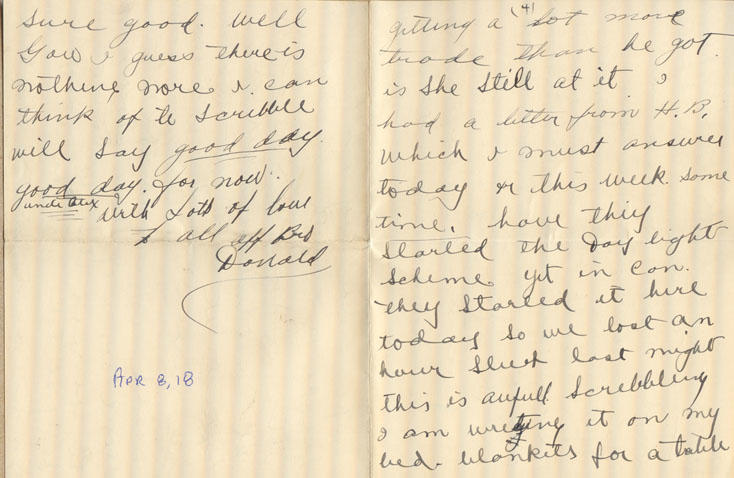 sure good. Well
Gow I guess there is
nothing more I can
think of to scribble
will say good day.
good day. for now.
uncle alex
With Lots of love
to all aff Bro
Donald
APR 8, 18
(4)
getting a lot more
trade than he got.
is she still at it I
had a letter from H.B.
which I must answer
today or this week some
time. have they
started the Day light
scheme yet in Can.
they started it here
today so we lost an
hour sleep last night
this is awfull scribbling
I am writing it on my
bed. blankets for a table